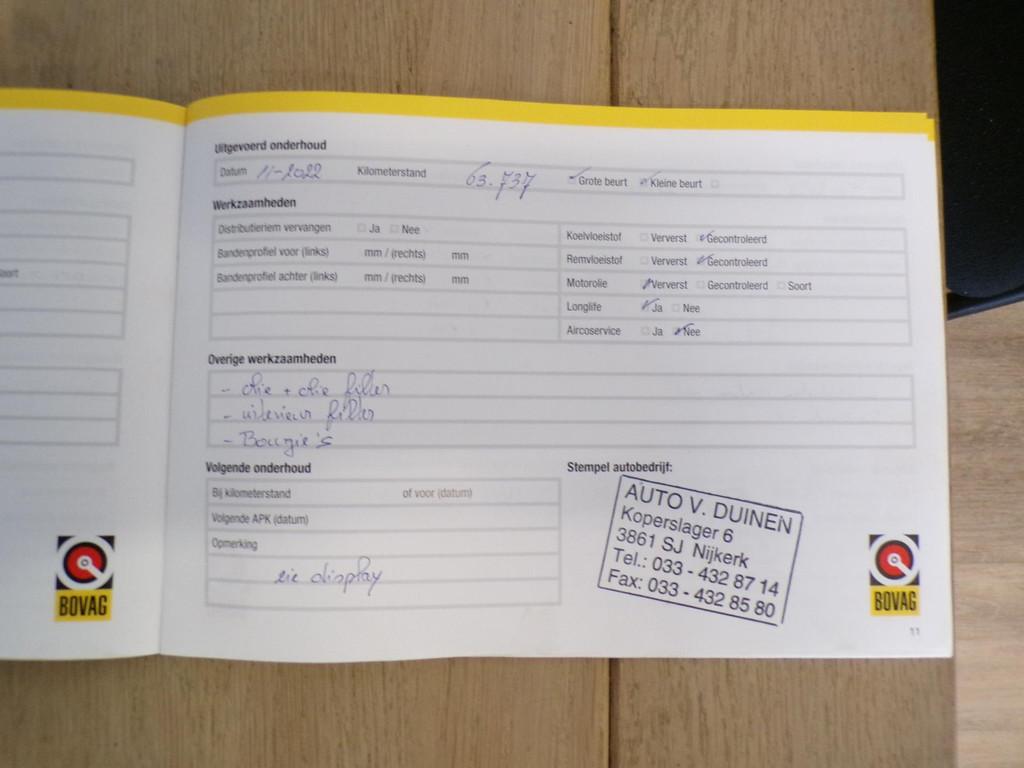 Uitgevoerd onderhoud
Datum 11-2022 Kilometerstand 63.737 Grote beurt Kleine beurt
Werkzaamheden
Distributieriem vervangen Ja Nee
Bandenprofiel voor (links) mm / (rechts) mm
Bandenprofiel achter (links) mm / (rechts) mm
Koelvloeistof Ververst Gecontroleerd
Remvloeistof Ververst Gecontroleerd
Motorolie Ververst Gecontroleerd Soort
Longlife Ja Nee
Aircoservice Ja Nee
Overige werkzaamheden
- olie + olie filter
- interieur filter
- Bougie's
Volgende onderhoud
Bij kilometerstand of voor (datum)
Volgende APK (datum)
Opmerking
zie display
Stempel autobedrijf:
AUTO V. DUINEN
Koperslager 6
3861 SJ Nijkerk
Tel.: 033 - 432 87 14
Fax: 033 - 432 85 80
BOVAG
BOVAG
11